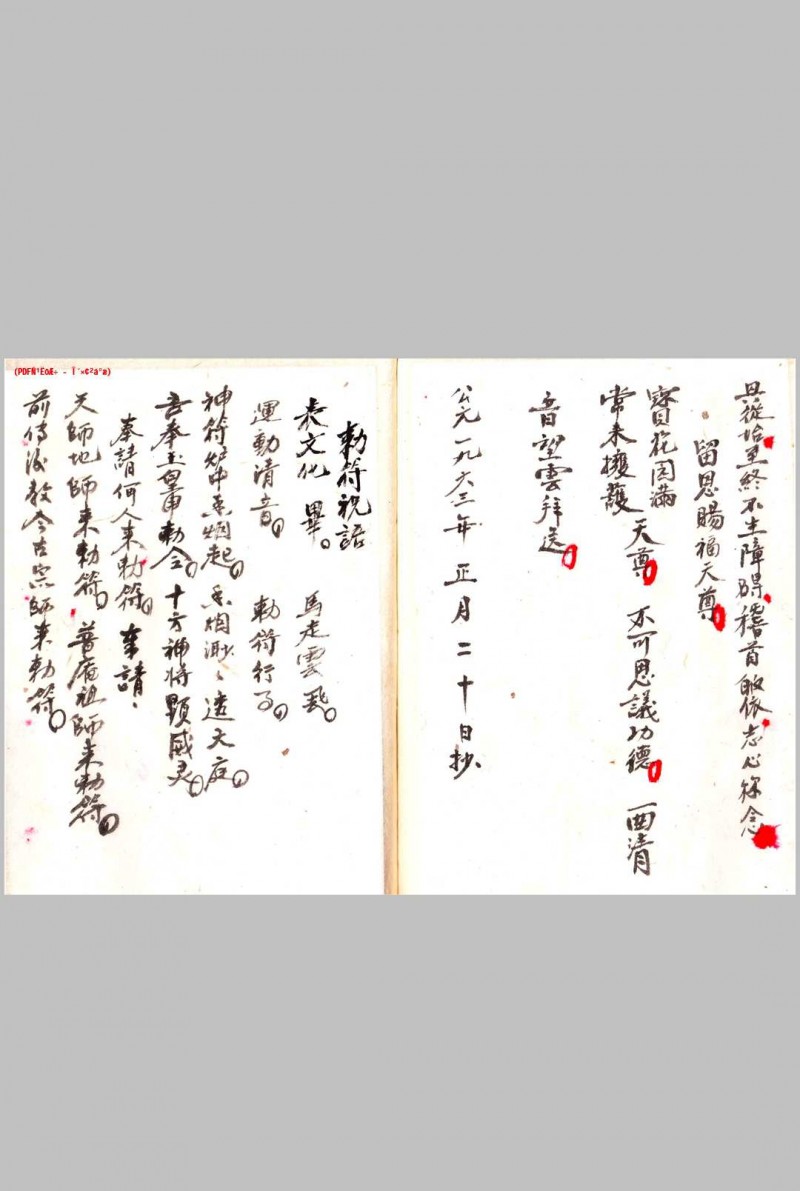 具從始至終不生障碍稽首皈依志心称念
留恩賜福天尊
寶花圓滿
常來擁護 天尊 不可思議功德 西清
音望雲拜送
公元一九六三年 正月二十日抄
勅符祝語
表文化畢。 馬走雲飛。
運動清音。 勅符行了。
神符炉中香烟起。香烟渺、透天庭。
吾奉玉皇勅令。十方神将顕威灵。
奉請何人来勅符。奉請、
天師地師来勅符。普庵祖師来勅符。
前傳後教今古宗師来勅符。